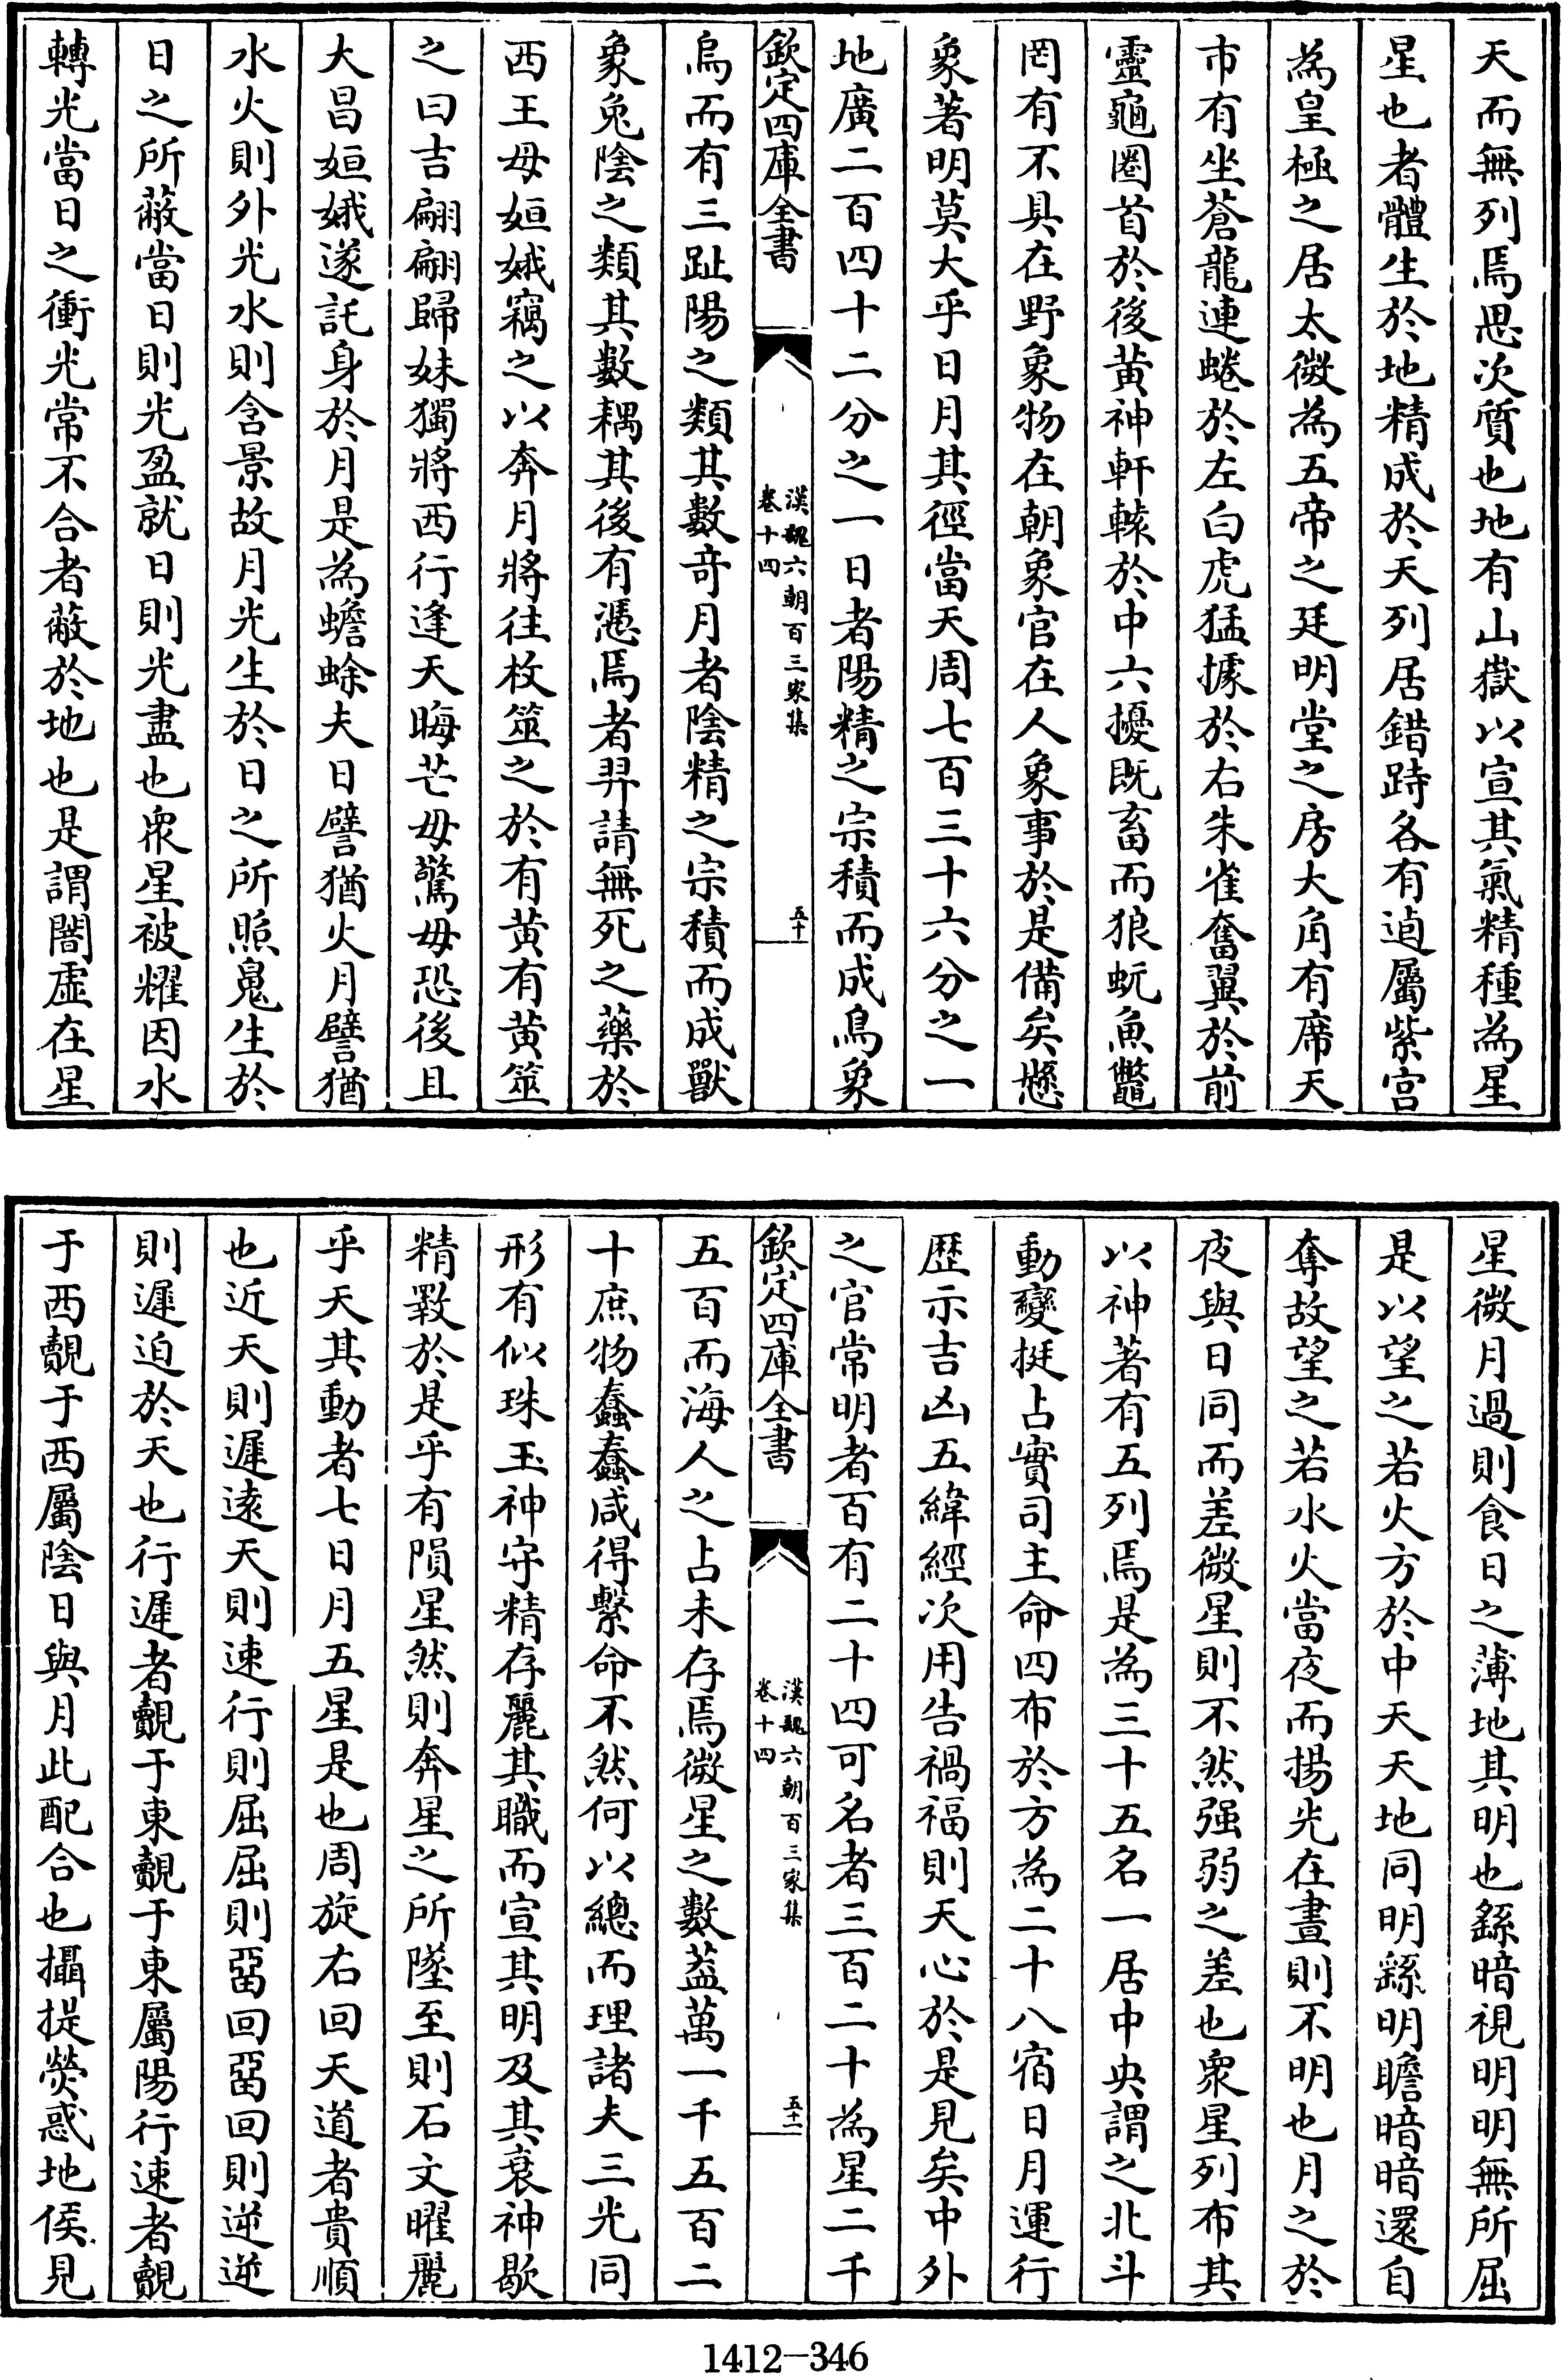 天而無列焉思次質也地有山嶽以宣其氣精種為星
星也者體生於地精成於天列居錯跱各有逌屬紫宮
為皇極之居太微為五帝之廷明堂之房大角有席天
市有坐蒼龍連蜷於左白虎猛據於右朱雀奮翼於前
靈龜圏首於後黄神軒轅於中六擾既畜而狼蚖魚鼈
罔有不具在野象物在朝象官在人象事於是備矣懸
象著明莫大乎日月其徑當天周七百三十六分之一
地廣二百四十二分之一日者陽精之宗積而成鳥象
欽定四庫全書
漢魏六朝百三家集
卷十四
五十
烏而有三趾陽之類其數竒月者陰精之宗積而成獸
象兔陰之類其數耦其後有馮焉者羿請無死之藥於
西王母姮娥竊之以奔月將往枚筮之於有黄有黄筮
之曰吉翩翩歸妹獨將西行逢天晦芒毋驚毋恐後且
大昌姮娥遂託身於月是為蟾蜍夫日譬猶火月譬猶
水火則外光水則含景故月光生於日之所照魄生於
日之所蔽當日則光盈就日則光盡也衆星被耀因水
轉光當日之衝光常不合者蔽於地也是謂闇虛在星
星微月過則食日之薄地其明也繇暗視明明無所屈
是以望之若火方於中天天地同明繇明瞻暗暗還自
奪故望之若水火當夜而揚光在晝則不明也月之於
夜與日同而差微星則不然强弱之差也衆星列布其
以神著有五列焉是為三十五名一居中央謂之北斗
動變挺占實司主命四布於方為二十八宿日月運行
歴示吉凶五緯經次用告禍福則天心於是見矣中外
之官常明者百有二十四可名者三百二十為星二千
欽定四庫全書
漢魏六朝百三家集
卷十四
五十一
五百而海人之占未存焉微星之數葢萬一千五百二
十庶物蠢蠢咸得繫命不然何以總而理諸夫三光同
形有似珠玉神守精存麗其職而宣其明及其衰神歇
精斁於是乎有隕星然則奔星之所墜至則石文曜麗
乎天其動者七日月五星是也周旋右回天道者貴順
也近天則遲逺天則速行則屈屈則㽞回㽞回則逆逆
則遲迫於天也行遲者覿于東覿于東屬陽行速者覿
于西覿于西屬陰日與月此配合也攝提熒惑地侯見
1412-346